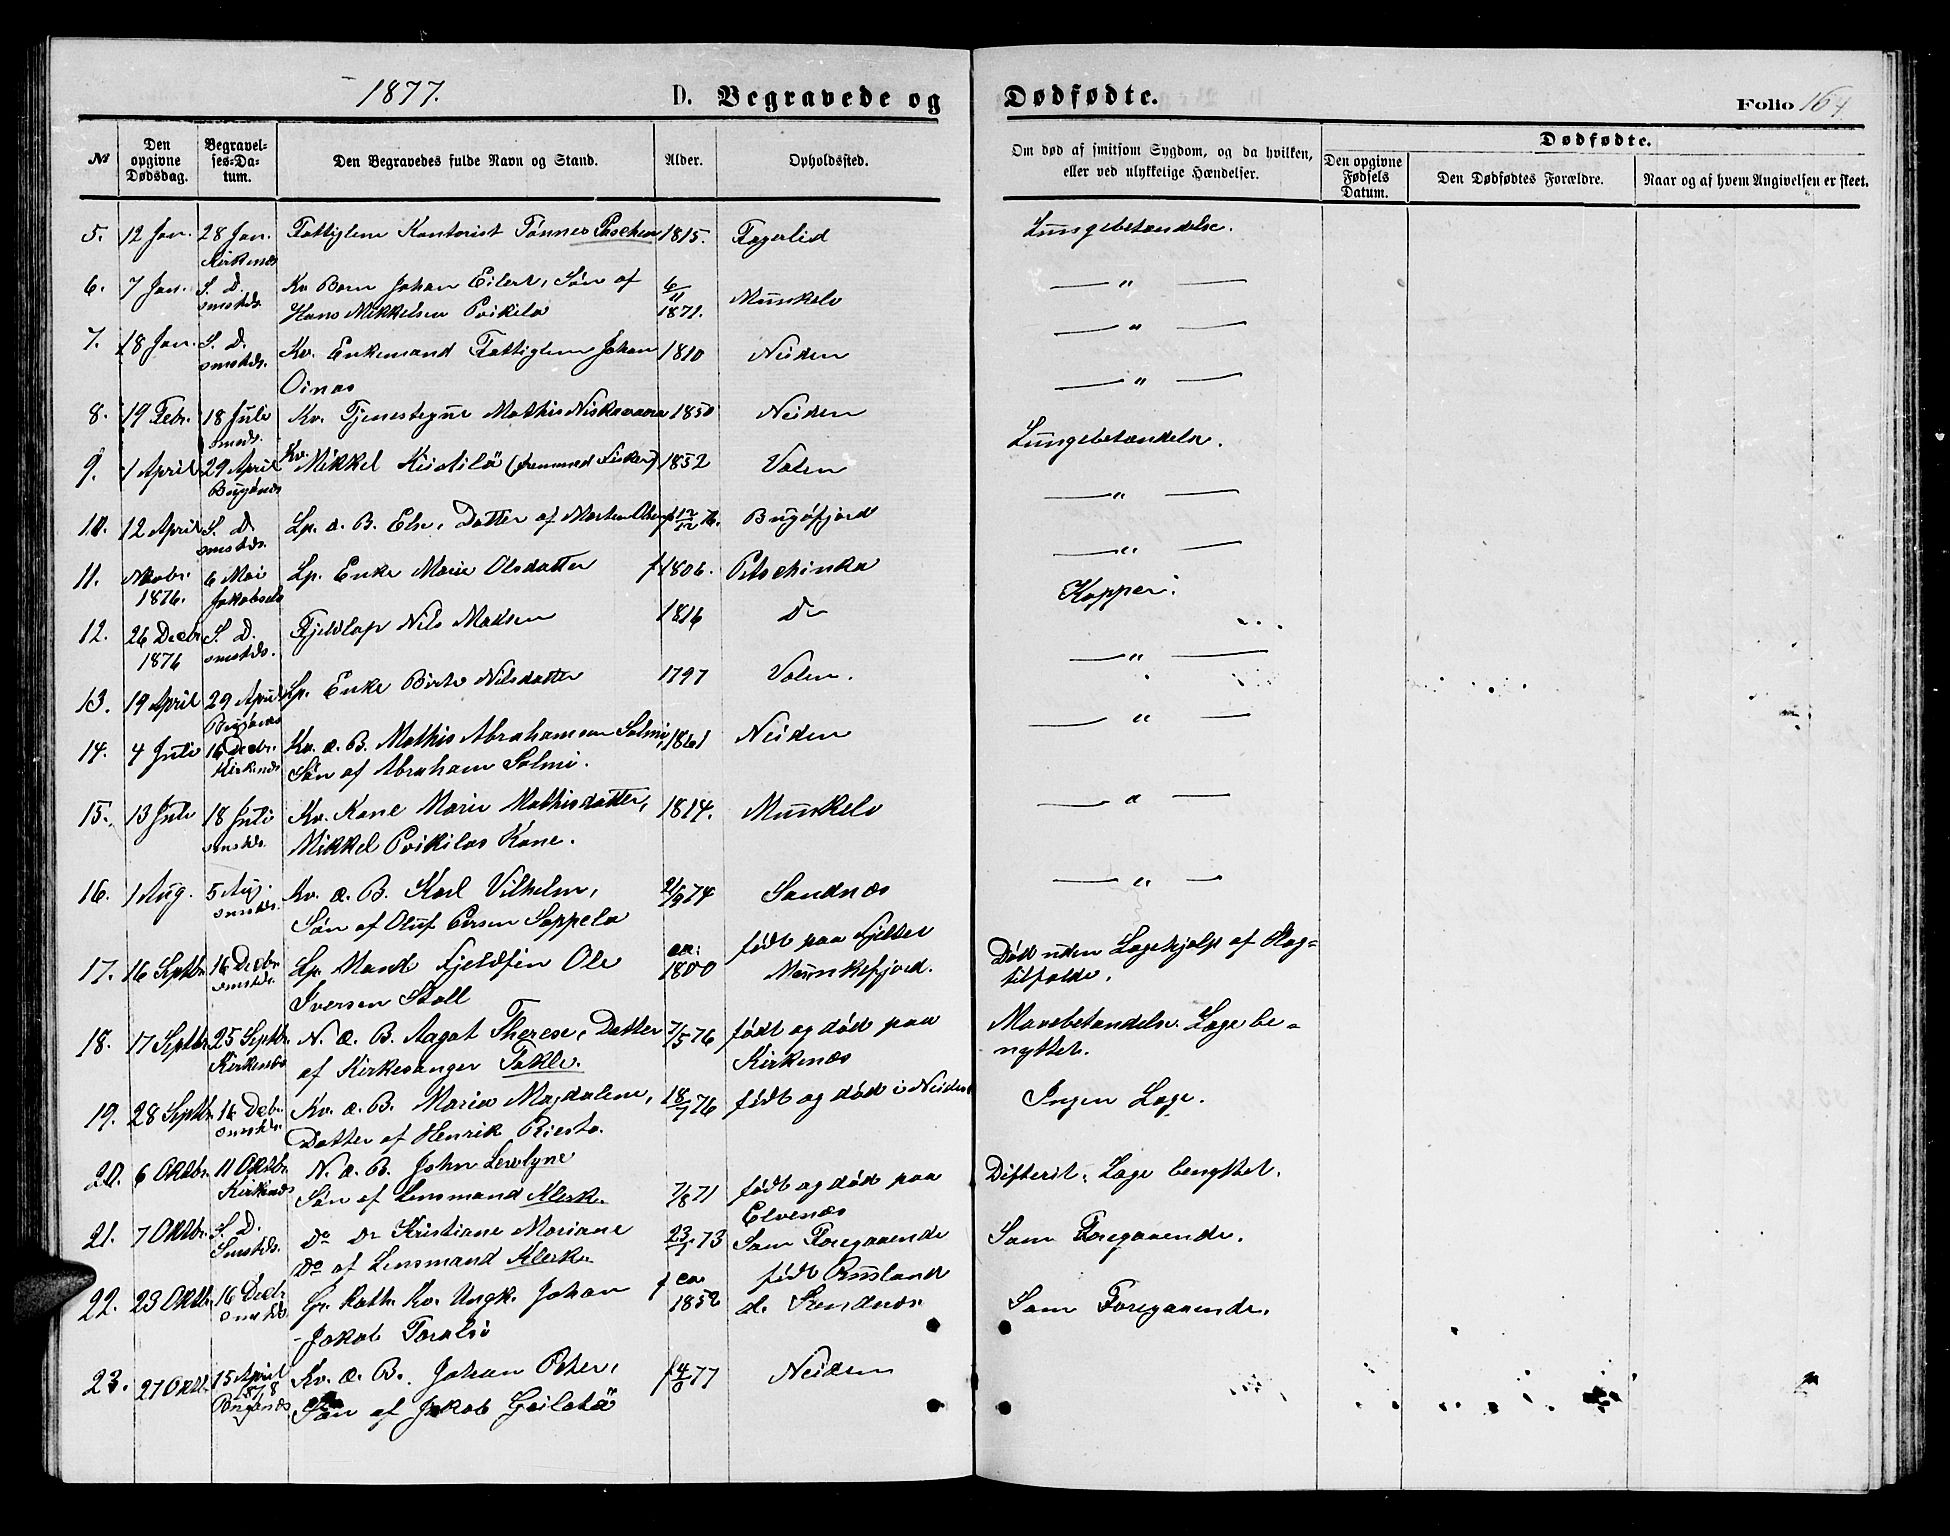 1877.
D. Begravede og Dødfødte.
Folio 164
№
Den opgivne Dødsdag.
Begravelses-Datum.
Den Begravedes fulde Navn og Stand.
Alder.
Opholdssted.
Om død af smitsom Sygdom, og da hvilken, eller ved ulykkelige Hændelser.
Dødfødte.
Den opgivne Fødsels Datum.
Den Dødfødtes Forældre.
Naar og af hvem Angivelsen er skeet.
5. 12 Jan. 28 Jan. Fattiglem Kontorist Tønnes 1815. Fagerlid Lungebetændelse.
Kirkenæs
6. 7 Jan. S. D. Kv. Barn Johan Eilert, Søn af 6/11 Munkelv — " —
smstds. Hans Mikkelsen Pvikela 1871.
— " —
7. 18 Jan. S. D. Kv. Enkemand Fattiglem Johan 1810 Neiden
smstds. Oinas
— " —
8. 19 Febr. 18 Juli Kv. Tjenestegut Mathis Niskavaara 1850 Neiden
smstds.
Lungebetændelse.
9. 1 April 29 April Kv. Mikkel (fremmed Fisker) 1852 Valen
Bugønæs
— " —
10. 12 April S. D. Lp. æ. B. Else, Datter af Morten Olsen f 12/12 76. Bugøfjord
smstds.
— " —
11. Novbr. 6 Mai Lp. Enke Marie Olsdatter f 1806. Petschinka
1876. Jakobselv
Kopper.
12. 26 Decbr. S. D. Fjeldlap Nils Madsen 1816 Do
1876 smstds.
— " —
13. 19 April 29 April Lp. Enke Birte Nilsdatter 1797 Valen.
Bugønæs
— " —
14. 4 Juli 16 Decbr. Kv. æ. B. Mathis Abrahamsen Salmi, 1861 Neiden
Kirkenæs Søn af Abraham Salmi.
— " —
15. 13 Juli 18 Juli Kv. Kone Marie Mathisdatter, 1814. Munkelv
smstds. Mikkel Pvikilas Kone.
— " —
16. 1 Aug. 5 Aug. Kv. æ. B. Karl Vilhelm, 21/9 74 Sandnæs
smstds. Søn af Oluf Persen Sappela
17. 16 Septbr. 16 Decbr. Lp. Mand Fjeldfin Ole ca: 1800 født paa Fjeldet Død uden Lægehjælp af Slag-
smstds. Iversen Stall Munkefjord. tilfælde.
18. 17 Septbr. 25 Septbr. N. æ. B. Aagot Therese, Datter 7/5 76 født og død paa Mavebetændelse. Læge be-
Kirkenæs af Kirkesanger Takle. Kirkenæs nyttet.
19. 28 Septbr. 16 Decbr. Kv. æ. B. Maria Magdalene, 18/7 76 født og død i Neiden Ingen Læge.
smstds. Datter af Henrik Riesto.
20. 6 Oktbr. 11 Oktbr. N. æ. B. John
Kirkenæs Søn af Lensmand Klerk. 7/8 71 født og død paa Difterit. Læge benyttet.
Elvenæs
21. 7 Oktbr. S. D. Do Do Kristiane Mariane 23/1 73 Som Foregaaende Som Foregaaende.
Smstds. Do af Lensmand Klerk.
22. 23 Oktbr. 16 Decbr. Gr. Kath. Kv. Ungk. Johan f ca 1852 født Rusland Som Foregaaende.
smstds. Jakob d. Sandnæs
23. 27 Oktbr. 15 April Kv. æ. B. Johan Peter, f 4/6 77 Neiden
1878
Bugønæs Søn af Jakob